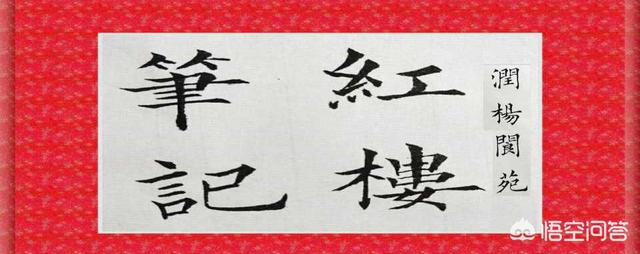 潤楊閬苑
紅樓
筆記
悟空问答